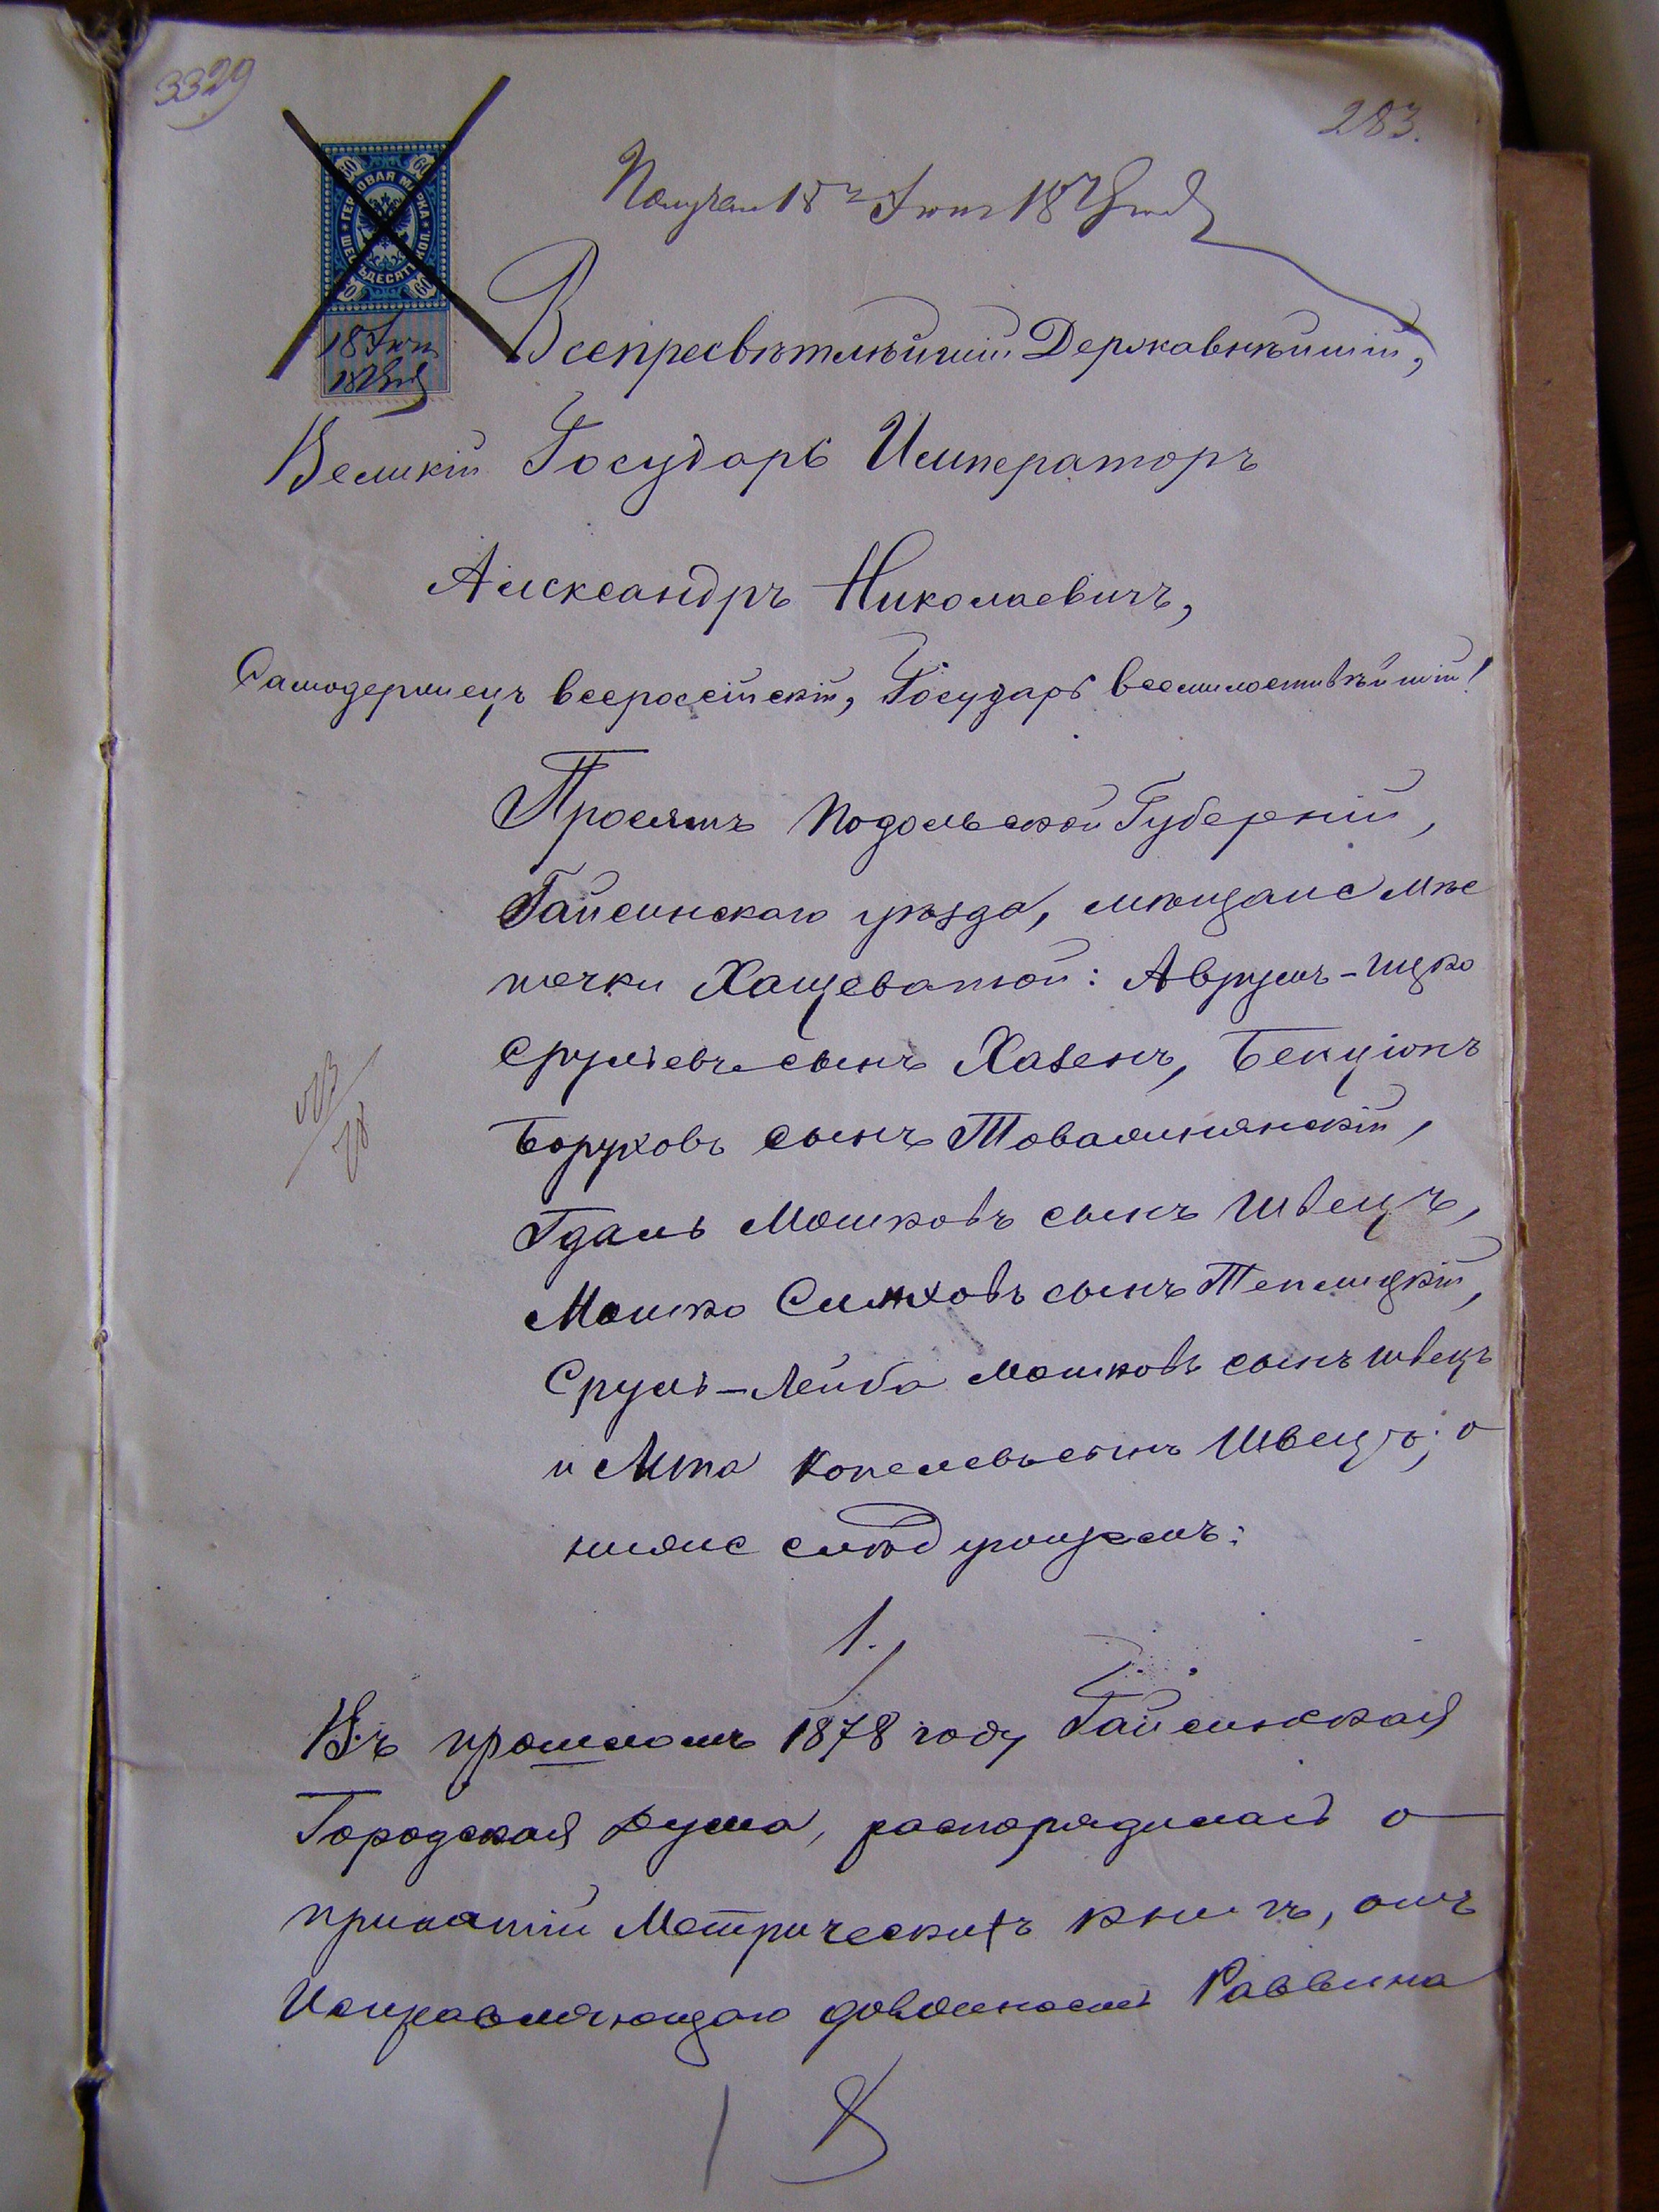 3329
283.
ГЕРБОВАЯ МАРКА
ШЕСТЬДЕСЯТЪ КОП.
60 60
18 Іюня
Получен 18 Іюня
Всепресвѣтлѣйшій Державнѣйшій,
Великій Государь Императоръ
Александръ Николаевичъ,
Самодержецъ всероссійскій, Государь всемилостивѣйшій!
Просятъ Подольской Губерніи,
Гайсинскаго уѣзда, мѣщане мѣс
течки Хащеватой: Аврумъ-Ицко
Срулевъ сынъ Хазенъ, Бенціонъ
Боруховъ сынъ
Гдаль Мошковъ сынъ Швецъ,
Мошко Симховъ сынъ Теплицкій,
Сруль-Лейба Мошковъ сынъ Швецъ
и Копелевъ сынъ Швецъ; о
нижеслѣдующемъ:
1.
Въ прошломъ 1878 году Гайсинская
Городская Дума, распорядилась о
принятіи Метрическихъ книгъ, отъ
Исправляющаго должность Раввина